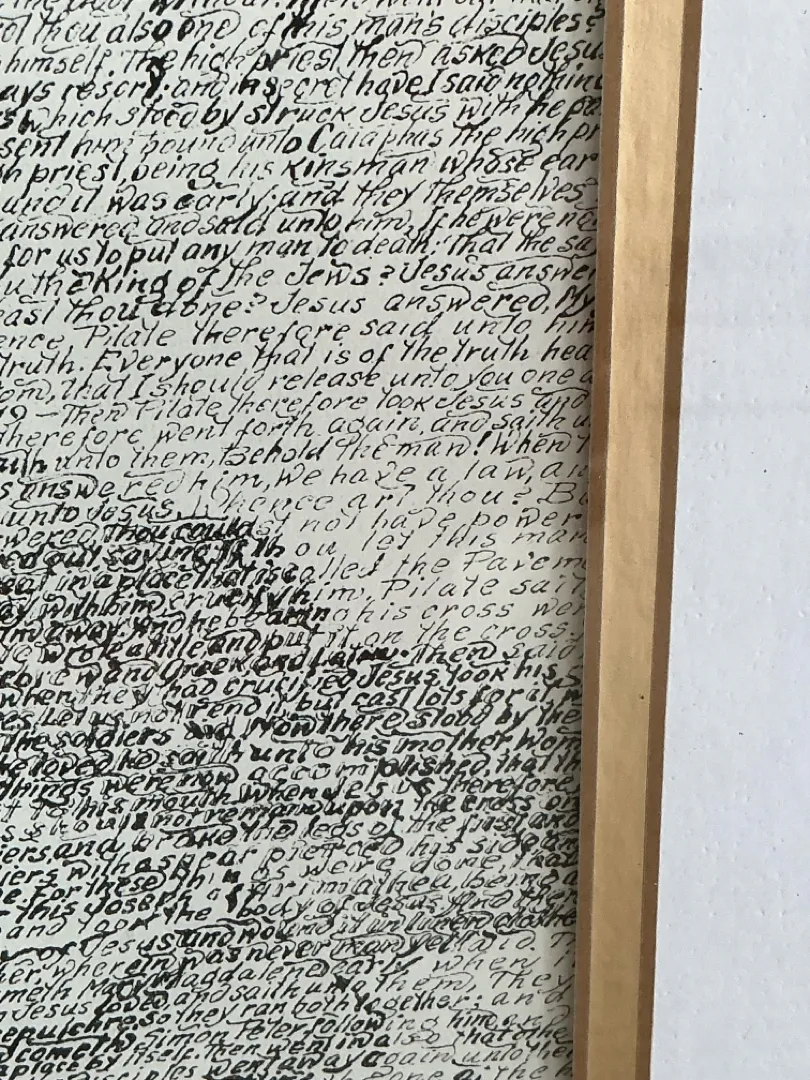 ol thou also one of this man's disciples?
himself. The high priest then asked Jesus
ays resort; and in secret have I said nothing
which stood by struck Jesus with the pa
sent him bound unto Caiaphas the high pr
h priest, being his kinsman whose ear
und it was early; and they themselves
answered and said unto him, If he were no
for us to put any man to death: That the sa
u the King of the Jews? Jesus answe
east thou done? Jesus answered, My
ence Pilate therefore said unto him
truth. Everyone that is of the truth hea
om, that I should release unto you one a
19 – Then Pilate therefore took Jesus and
therefore went forth again, and saith u
aith unto them, Behold the man! When t
s answered him, We have a law, an
unto Jesus, Whence art thou? Bu
wered, Thou couldst not have power
ed out, saying, If thou let this man
eat in a place that is called the Pavem
ay with him, crucify him, Pilate sait
im away. And he bearing his cross wen
wrote a title and put it on the cross,
ebrew and Greek and Latin. Then said
when they had crucified Jesus, took his
es. Let us not rend it, but cast lots for it w
the soldiers Now there stood by the
he loved, he saith unto his mother, Wom
things were now accomplished, that th
it to his mouth. When Jesus therefore
should not remain upon the cross on
iers, and broke the legs of the first and
iers with a spear pierced his side an
e. For these things were done, that
r this Joseph of Arimathea, being a
and took the body of Jesus And there
of Jesus and wound it in linen clothe
her, wherein was never man yet laid. T
meth Mary Magdalene early, when
m Jesus loved, and saith unto them, They
epulchre, so they ran both together: and
cometh Simon Peter following him, and
place by itself. Then went in also that othe
disciples went away again unto thei